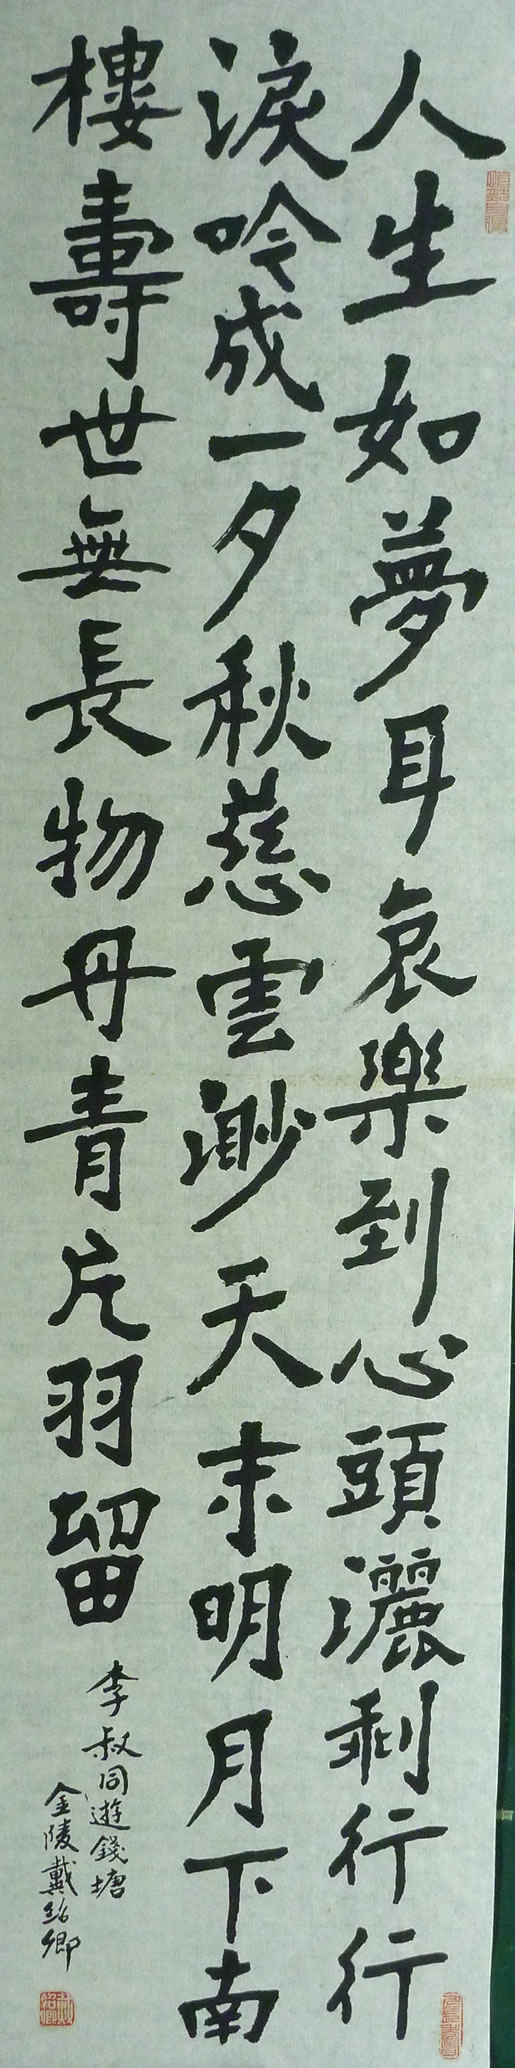 人生如夢耳哀樂到心頭灑剩行行
淚吟成一夕秋慈雲渺天末明月下南
樓壽世無長物丹青片羽留
李叔同遊錢塘
金陵戴紹卿